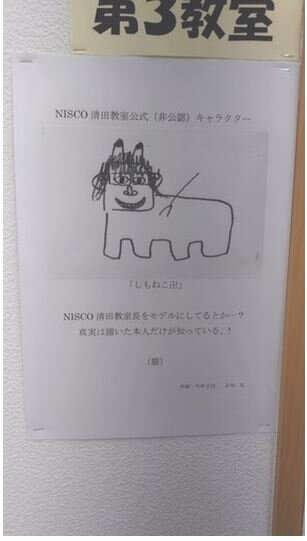 第3教室
NISCO 清田教室公式（非公認）キャラクター
「しもねこ卍」
NISCO 清田教室長をモデルにしてるとか…？
真実は描いた本人だけが知っている、！
（猫）